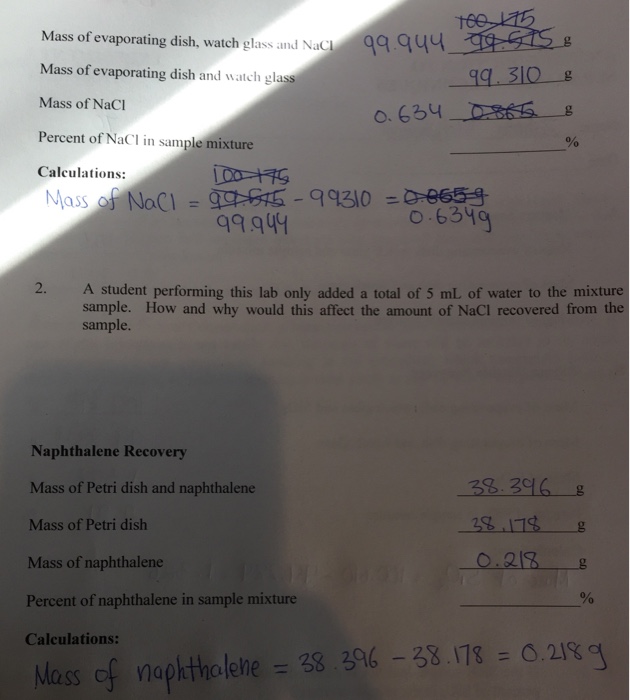 100.175
Mass of evaporating dish, watch glass and NaCl 99.944 99.575 g
Mass of evaporating dish and watch glass 99.310 g
Mass of NaCl 0.634 0.865 g
Percent of NaCl in sample mixture %
Calculations:
100.175
Mass of NaCl = 99.575 - 99310 = 0.865 g
99.944 0.634g
2. A student performing this lab only added a total of 5 mL of water to the mixture
sample. How and why would this affect the amount of NaCl recovered from the
sample.
Naphthalene Recovery
Mass of Petri dish and naphthalene 38.396 g
Mass of Petri dish 38.178 g
Mass of naphthalene 0.218 g
Percent of naphthalene in sample mixture %
Calculations:
Mass of naphthalene = 38.396 - 38.178 = 0.218 g